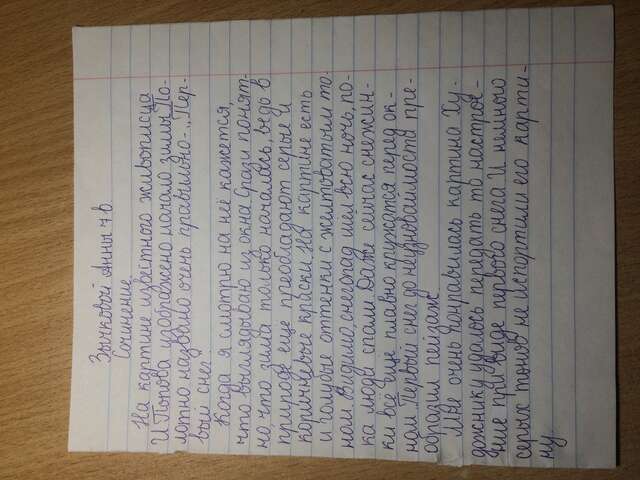 Зычковой Анны 7 в
Сочинение.
На картине известного живописца
И Попова изображено начало зимы. По-
лотно названо очень правильно- „Пер-
вый снег".
Когда я смотрю на неё кажется,
что выглядываю из окна. Сразу понят-
но, что зима только началась, ведь в
природе еще преобладают серые и
коричневые краски. На картине есть
и голубые оттенки с желтоватым то-
ном. Видимо, снегопад шел всю ночь, по-
ка люди спали. Даже сейчас снежин-
ки всё еще плавно кружатся перед ок-
ном. Первый снег до неузноваимости пре-
образил пейзаж.
Мне очень понравилась картина. Ху-
дожнику удалось передать то настрое-
ние при виде первого снега. И немного
серых тонов не испортили его карти-
ну.